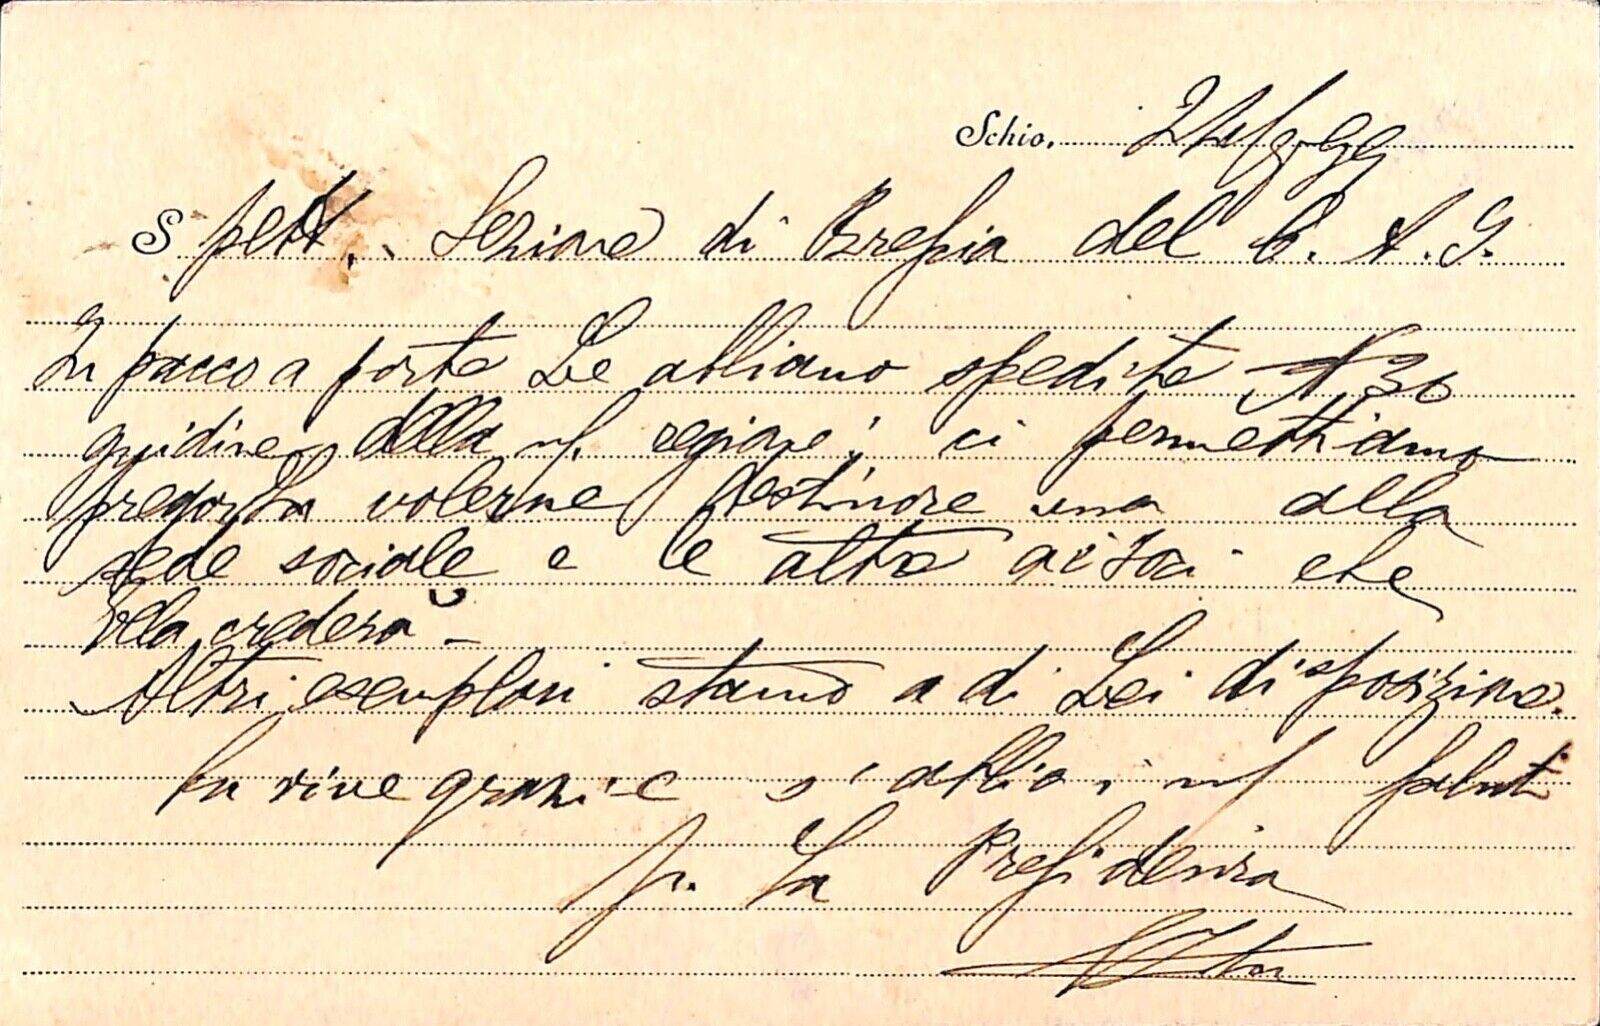 Schio, 24/8.99
Spett. Sezione di Brescia del C. A. I.
In pacco a parte Le abbiamo spedite N 30
guidine della n/. regione; ci permettiamo
pregarLa volerne destinare una alla
sede sociale e le altre ai soci che
Ella crederà -
Altri esemplari stanno a di Lei disposizione.
La vive grazie s'abbia i n/ saluti
p. La Presidenza